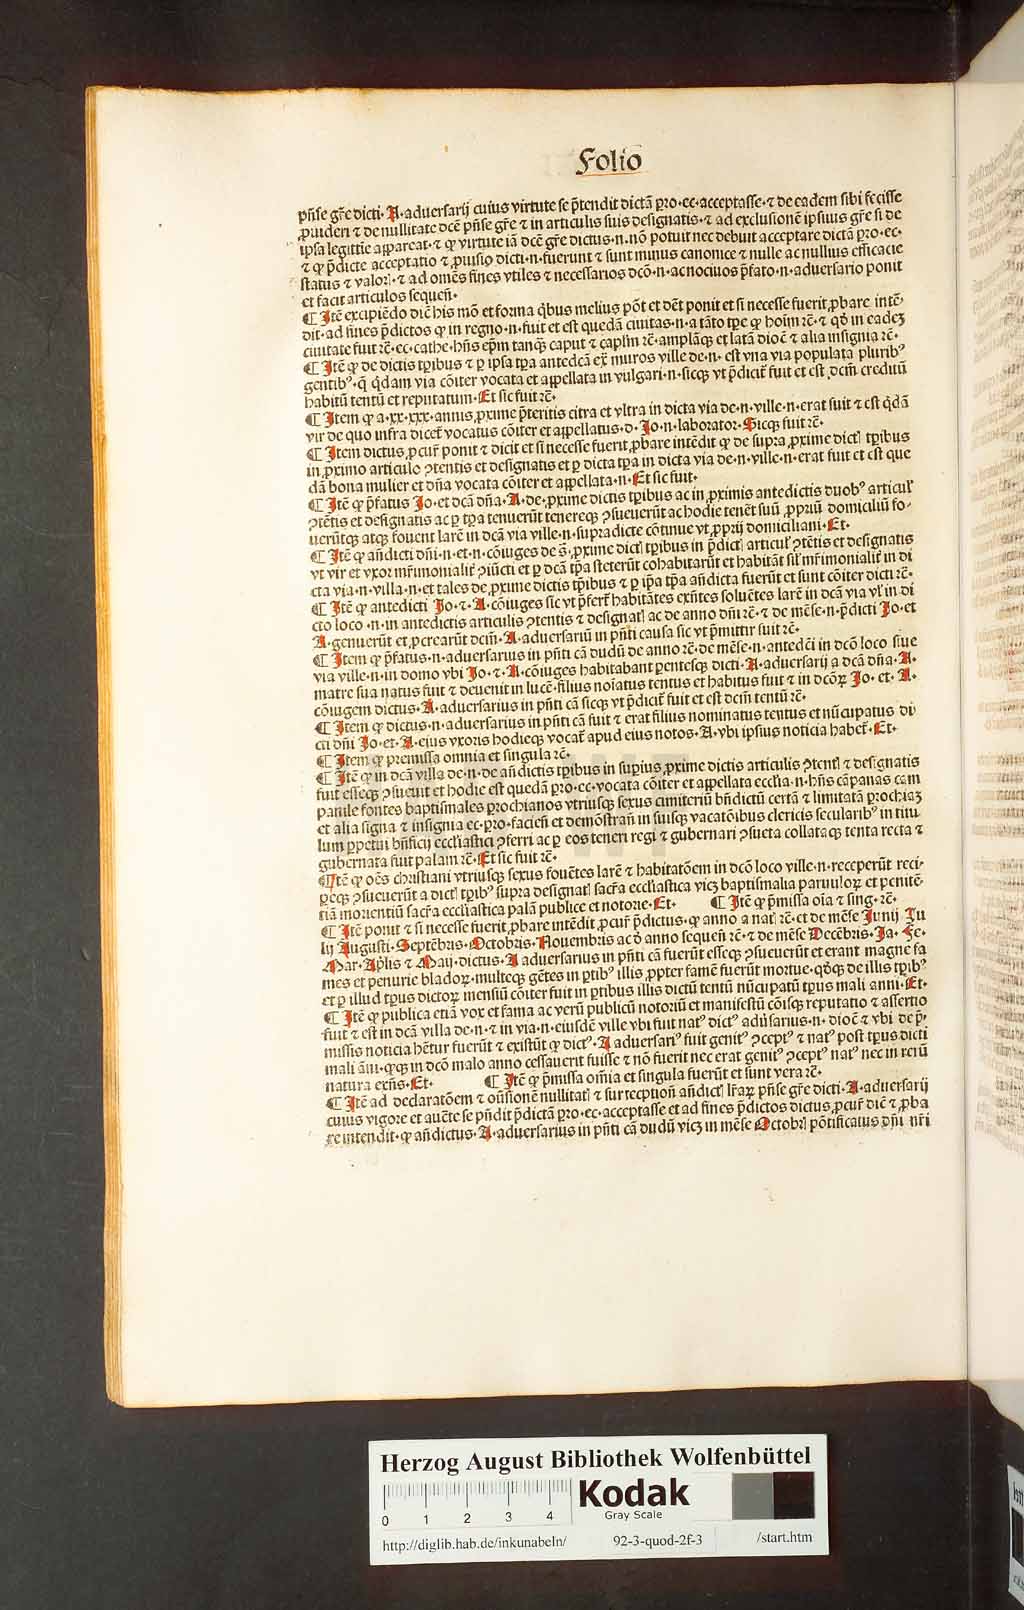 Folio
pñse gr̄e dicti·A·aduersarij cuius virtute se p̄tendit dictā pro·ec·acceptasse·⁊ de eadem sibi fecisse
ꝓuideri ⁊ de nullitate dcē pñse gr̄e ⁊ in articulis suis designatis·⁊ ad exclusionē ipsius gr̄e si de
ipsa legittie appareat·⁊ ꝙ virtute iā dcē gr̄e dictus·n·nō potuit nec debuit acceptare dictā pro·ec·
⁊ ꝙ p̄dicte acceptatio ⁊ ꝓuisio dicti·n·fuerunt ⁊ sunt minus canonice ⁊ nulle ac nullius efficacie
status ⁊ valorꝭ·⁊ ad omēs fines vtiles ⁊ necessarios dcō·n·ac nociuos p̄fato·n·aduersario ponit
et facit articulos sequeñ·
¶ Itē excipiēdo diē his mō et forma q̇bus melius pōt et dēt ponit et si necesse fuerit ꝓbare intē-
dit·ad fines p̄dictos ꝙ in regno·n·fuit et est quedā ciuitas·n·a tāto tꝑe ꝙ hoim̄ rē·⁊ qđ in eadeȝ
ciuitate fuit rē·ec·cathe·hñs ep̄m tanqȝ caput ⁊ caplm̄ rē·amplāqȝ et latā dioē ⁊ alia insignia rē·
¶ Itē ꝙ de dictis tꝑibus ⁊ ꝑ ipsa tꝑa antedcā ex̄ muros ville de·n·est vna via populata pluribꝰ
gentibꝰ·q̄ q̄dam via cōiter vocata et appellata in vulgari·n·sicqȝ vt p̄dicit̄ fuit et est ꝺcm̄ creditū
habitū tentū et reputatum·Et sic fuit rē·
¶ Item ꝙ a·xx·xxx·annis ꝓxime p̄teritis citra et vltra in dicta via de·n·ville·n·erat fuit ⁊ est q̄dā
vir de quo infra dicet̄ vocatus cōiter et appellatus·d·Jo·n·laborator·Sicqȝ fuit rē·
¶ Item dictus ꝓcur̄ ponit ⁊ dicit et si necesse fuerit ꝓbare intēdit ꝙ de supra ꝓxime dictꝭ tꝑibus
in ꝓximo articulo ꝯtentis et designatis et ꝑ dicta tꝑa in dicta via de·n·ville·n·erat fuit et est que
dā bona mulier et dña vocata cōiter et appellata·n·Et sic fuit·
¶ Itē ꝙ p̄fatus Jo·et dcā dña·A·de ꝓxime dictis tꝑibus ac in ꝓximis antedictis duobꝰ articuľ
ꝯtētis et designatis ac ꝑ tꝑa tenuerūt tenereqȝ ꝯsueuerūt ac hodie tenēt suū ꝓpriū domiciliū fo-
uerūtqȝ atqȝ fouent larē in dcā via ville·n·supradicte cōtinue vt ꝓprij domiciliani·Et·
¶ Itē ꝙ añdicti dñi·n·et·n·cōiuges de ꝓxime dictꝭ tꝑibus in p̄dictꝭ articuľ ꝯtētis et designatis
vt vir et vxor mr̄imonialit̄ ꝯiūcti et ꝑ dcā tꝑa steterūt cohabitarūt et habitāt siľ mr̄imonialit̄ in di
cta via·n·villa·n·et tales de ꝓxime dictis tꝑibus ⁊ ꝑ ip̄a tꝑa añdicta fuerūt et sunt cōiter dicti rē·
¶ Itē ꝙ antedicti Jo·⁊·A·cōiuges sic vt p̄fert̄ habitātes exñtes soluētes larē in dcā via vľ in di
cto loco·n·in antedictis articulis ꝯtentis ⁊ designatꝭ ac de anno dñi rē·⁊ de mēse·n·p̄dicti Jo·et
A·genuerūt et ꝓcrearūt dcm̄·A·aduersariū in pñti causa sic vt p̄mittit̄ fuit rē·
¶ Item ꝙ p̄fatus·n·aduersarius in pñti cā dudū de anno rē·de mēse·n·antedcī in dcō loco siue
via ville·n·in domo vbi Jo·⁊·A·cōiuges habitabant ꝑentesqȝ dicti·A·aduersarij a dcā dña·A·
matre sua natus fuit ⁊ deuenit in lucē·filius noīatus tentus et habitus fuit ⁊ in dcōꝝ Jo·et·A·
cōiugem dictus·A·aduersarius in pñti cā sicqȝ vt p̄dicit̄ fuit et est dcm̄ tentū rē·
¶ Item ꝙ dictus·n·aduersarius in pñti cā fuit ⁊ erat filius nominatus tentus et nūcupatus di
cti dñi Jo·et·A·eius vxoris hodieqȝ vocat̄ apud eius notos·A·vbi ipsius noticia habet̄·Et·
¶ Item ꝙ premissa omnia et singula rē·
¶ Itē ꝙ in dcā villa de·n·de añdictis tꝑibus in suꝑius ꝓxime dictis articulis ꝯtentꝭ ⁊ designatis
fuit esseqȝ ꝯsueuit et hodie est quedā pro·ec·vocata cōiter et appellata eccľia·n·hñs cāpanas cam
panile fontes baptismales prochianos vtriusqȝ sexus cimiteriū bñdictū certā ⁊ limitatā prochiaȝ
et alia signa ⁊ insignia ec·pro·facieñ et demōstrañ in suisqȝ vacatōibus clericis secularibꝰ in titu
lum ꝑpetui bñficij eccľiastici ꝯferri ac ꝑ eos teneri regi ⁊ gubernari ꝯsueta collataqȝ tenta recta ⁊
gubernata fuit palam rē·Et sic fuit rē·
¶ Itē ꝙ oēs christiani vtriusqȝ sexus fouētes larē ⁊ habitatōem in dcō loco ville·n·receperūt reci-
pereqȝ ꝯsueuerūt a dictꝭ tꝑibꝰ supra designatꝭ sacr̄a eccľiastica vicȝ baptismalia paruuloꝝ et penitē-
tiā morientiū sacr̄a eccľiastica palā publice et notorie·Et· ¶ Itē ꝙ p̄missa oīa ⁊ sing·rē·
¶ Itē ponit ⁊ si necesse fuerit ꝓbare intēdit ꝓcur̄ p̄dictus·ꝙ anno a natꝭ rē·et de mēse Junij Ju
lij Augusti·Septēbris·Octobris·Nouembris ac đ anno sequeñ rē·⁊ de mēse Decēbris·Ja·Fe·
Mar·Aplis ⁊ Maij·dictus·A aduersarius in pñti cā fuerūt esseqȝ ꝯsueuerūt et erant magne fa
mes et penurie bladoꝝ·multeqȝ gētes in ꝑtibꝰ illis ꝓpter famē fuerūt mortue·qđqȝ de illis tꝑibꝰ
et ꝑ illud tꝑus dictoꝝ mensiū cōiter fuit in ꝑtibus illis dictū tentū nūcupatū tꝑus mali anni·Et·
¶ Itē ꝙ publica etiā vox et fama ac verū publicū notoriū et manifestū cōisqȝ reputatio ⁊ assertio
fuit ⁊ est in dcā villa de·n·⁊ in via·n·eiusdē ville vbi fuit natꝰ dictꝰ adūsarius·n·dioē ⁊ vbi de p̄-
missis noticia hētur fuerūt ⁊ existūt ꝙ dictꝰ·A aduersariꝰ fuit genitꝰ ꝯceptꝰ ⁊ natꝰ post tꝑus dicti
mali āni·ꝙqȝ in dcō malo anno cessauerit fuisse ⁊ nō fuerit nec erat genitꝰ ꝯceptꝰ natꝰ nec in rerū
natura exñs·Et· ¶ Itē ꝙ p̄missa om̄ia et singula fuerūt et sunt vera rē·
¶ Itē ad declaratōem ⁊ oñsionē nullitatꝭ ⁊ surreptionꝭ añdictꝭ lr̄aꝝ pñse gr̄e dicti·A·aduersarij
cuius vigore et auc̄te se pñdit p̄dictā pro·ec·acceptasse et ad fines p̄dictos dictus ꝓcur̄ diē ⁊ ꝓba
re intendit·ꝙ añdictus·A·aduersarius in pñti cā dudū vicȝ in mēse Octobꝭ pōtificatus dñi nr̄i
Herzog August Bibliothek Wolfenbüttel
0 1 2 3 4
Kodak
Gray Scale
http://diglib.hab.de/inkunabeln/ 92-3-quod-2f-3 /start.htm